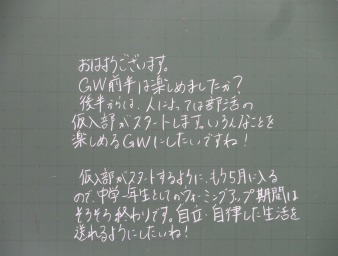 おはようございます。
GW前半は楽しめましたか?
後半からは、人によっては部活の
仮入部がスタートします。いろんなことを
楽しめるGWにしたいですね!
仮入部がスタートするように、もう5月に入る
ので、中学一年生としてのウォーミングアップ期間は
そろそろ終わりです。自立・自律した生活を
送れるようにしたいね!